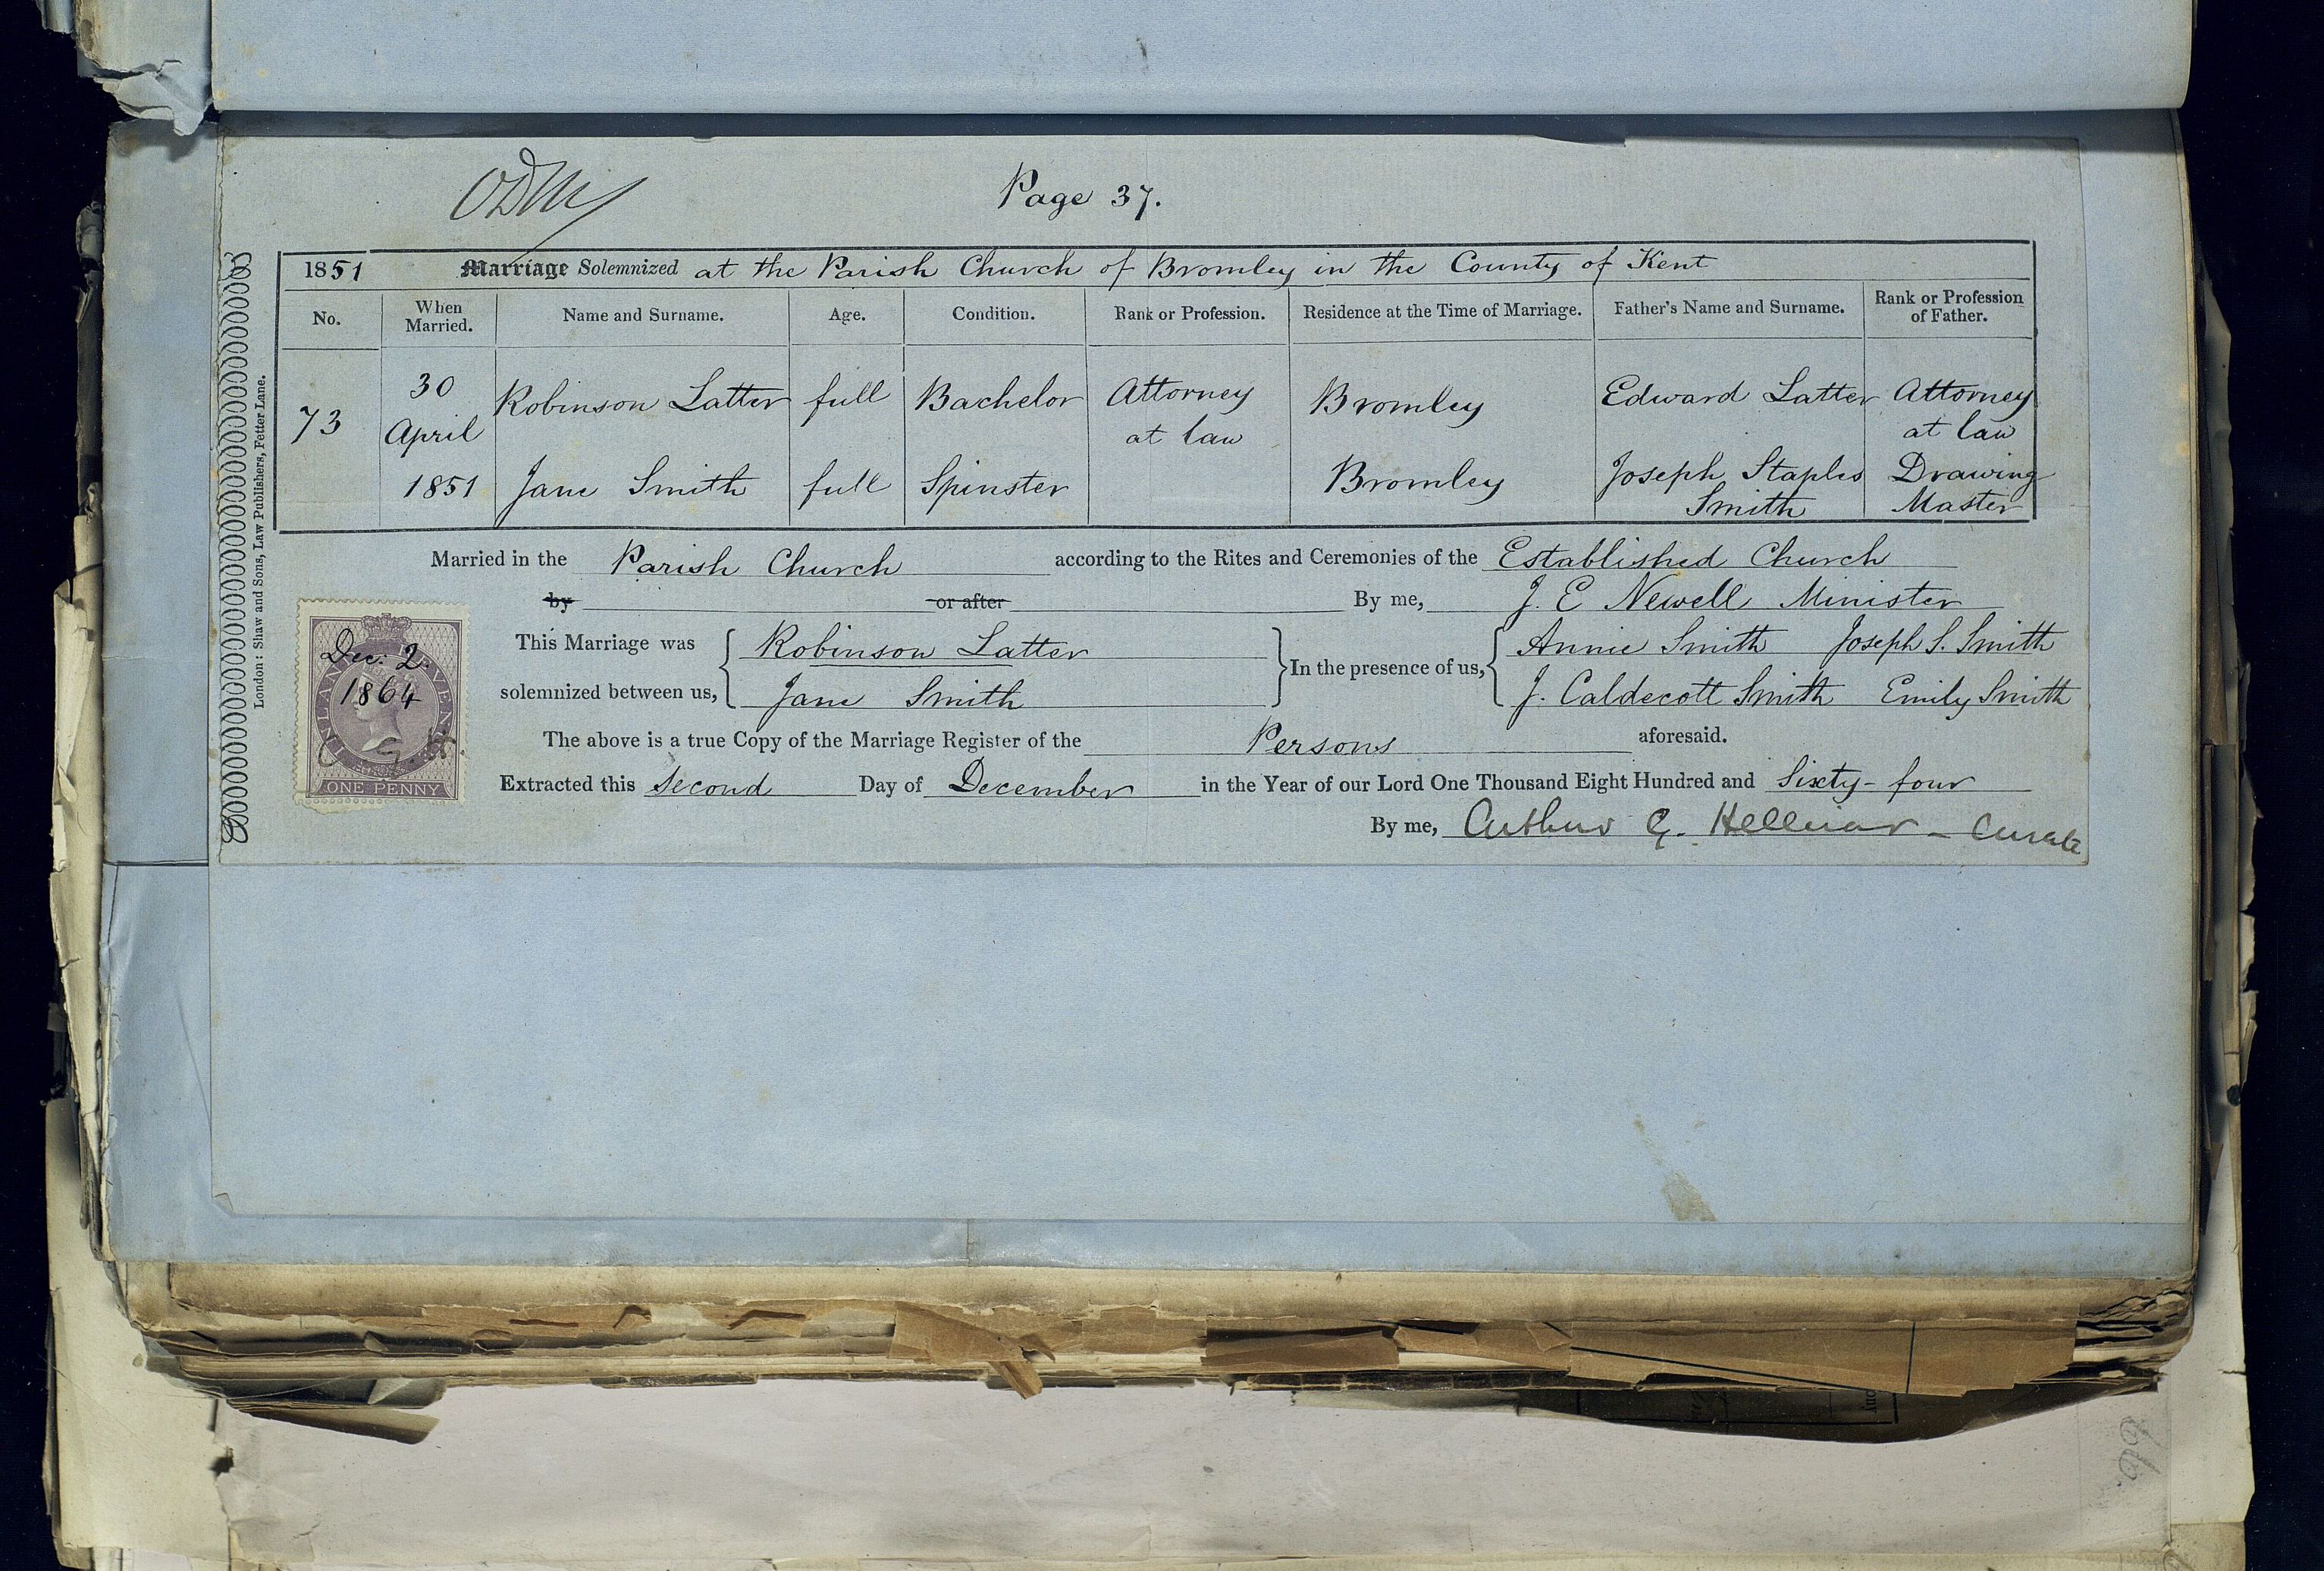 Page 37.
1851 Marriage Solemnized at the Parish Church of Bromley in the County of Kent
No. When Married. Name and Surname. Age. Condition. Rank or Profession. Residence at the Time of Marriage. Father's Name and Surname. Rank or Profession of Father.
73 30 April 1851
Robinson Latter full Bachelor Attorney at law Bromley Edward Latter Attorney at law
Jane Smith full Spinster Bromley Joseph Staples Smith Drawing Master
Married in the Parish Church according to the Rites and Ceremonies of the Established Church
by or after By me, J. E Newell Minister
This Marriage was solemnized between us, Robinson Latter Jane Smith
In the presence of us, Annie Smith Joseph S. Smith J. Caldecott Smith Emily Smith
The above is a true Copy of the Marriage Register of the Persons aforesaid.
Extracted this second Day of December in the Year of our Lord One Thousand Eight Hundred and Sixty-four
By me, Arthur G. Hellicar - Curate
Dec: 2.
1864
INLAND REVENUE
ONE PENNY
London: Shaw and Sons, Law Publishers, Fetter Lane.